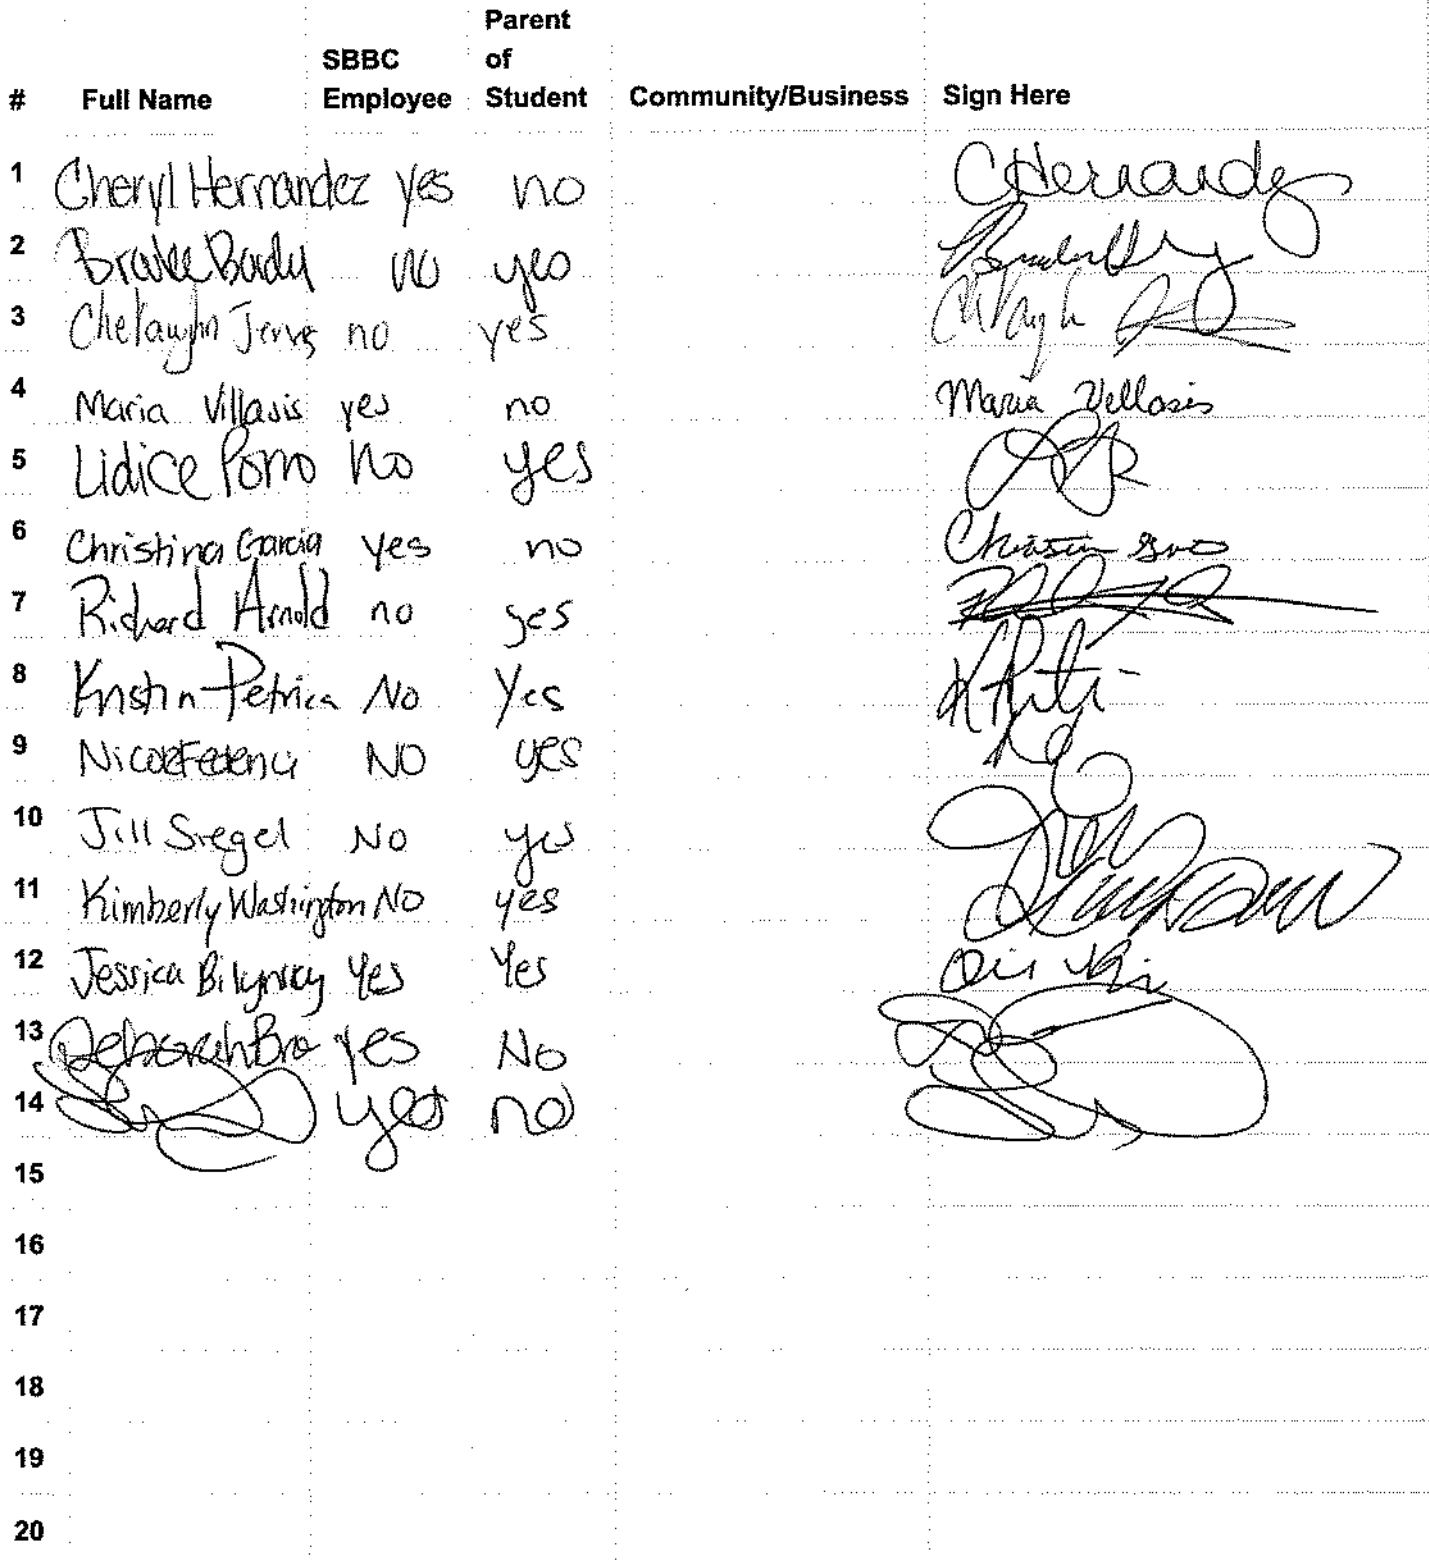 # Full Name SBBC Employee Parent of Student Community/Business Sign Here
1 Cheryl Hernandez yes no CHernandez
2 no yes
3 no yes
4 Maria Villasis yes no Maria Villasis
5 Lidice Porro no yes
6 Christina Garcia yes no
7 Richard Arnold no yes
8 Kristin Petrica No Yes
9 Nicole Federici NO yes
10 Jill Siegel No yes
11 Kimberly Washington No yes
12 Jessica Yes Yes
13 Deborah Bro yes No
14 yes no
15
16
17
18
19
20